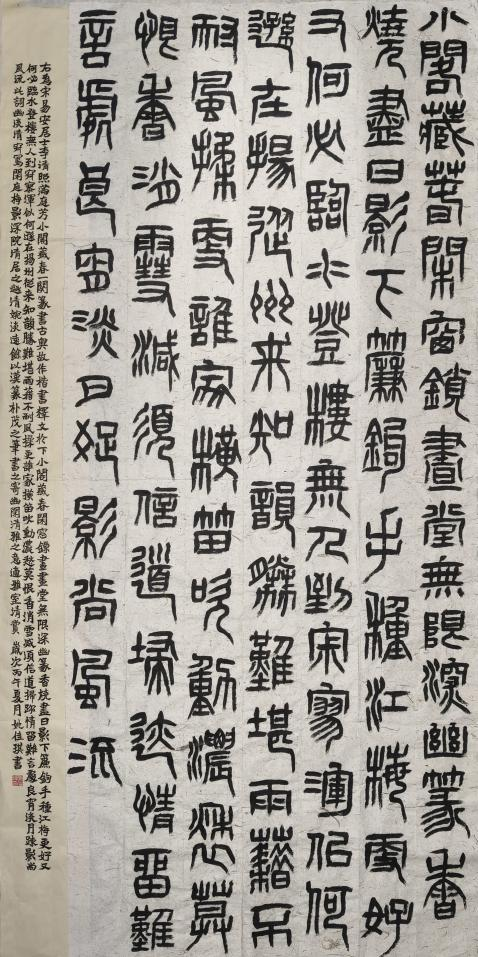 小閣藏春閑窗鎖晝堂無限深幽篆香
燒盡日影下簾鉤手種江梅更好
又何必臨水登樓無人到寂寥渾似何
遜在揚從州来知韻勝難堪雨藉不
耐風揉更誰家橫笛吹動濃愁莫
恨香消雪減須信道掃迹情留難
言處良宵淡月疏影尚風流
右為宋易安居士李清照滿庭芳小閣藏春一闋篆書古奧故作楷書釋文於下小閣藏春閑窗鎖晝畫堂無限深幽篆香燒盡日影下簾鈎手種江梅更好又
何必臨水登樓無人到寂寥渾似何遜在揚州從来知韻勝難堪雨藉不耐風揉更誰家橫笛吹動濃愁莫恨香消雪減須信道掃跡情留難言處良宵淡月疎影尚
風流此詞幽淡清寂寫閑庭梅影深院清居之趣清婉淡遠餘以漢篆朴茂之筆書之寄幽閑清雅之意適雅室清賞 歲次丙午夏月姚佳琪書